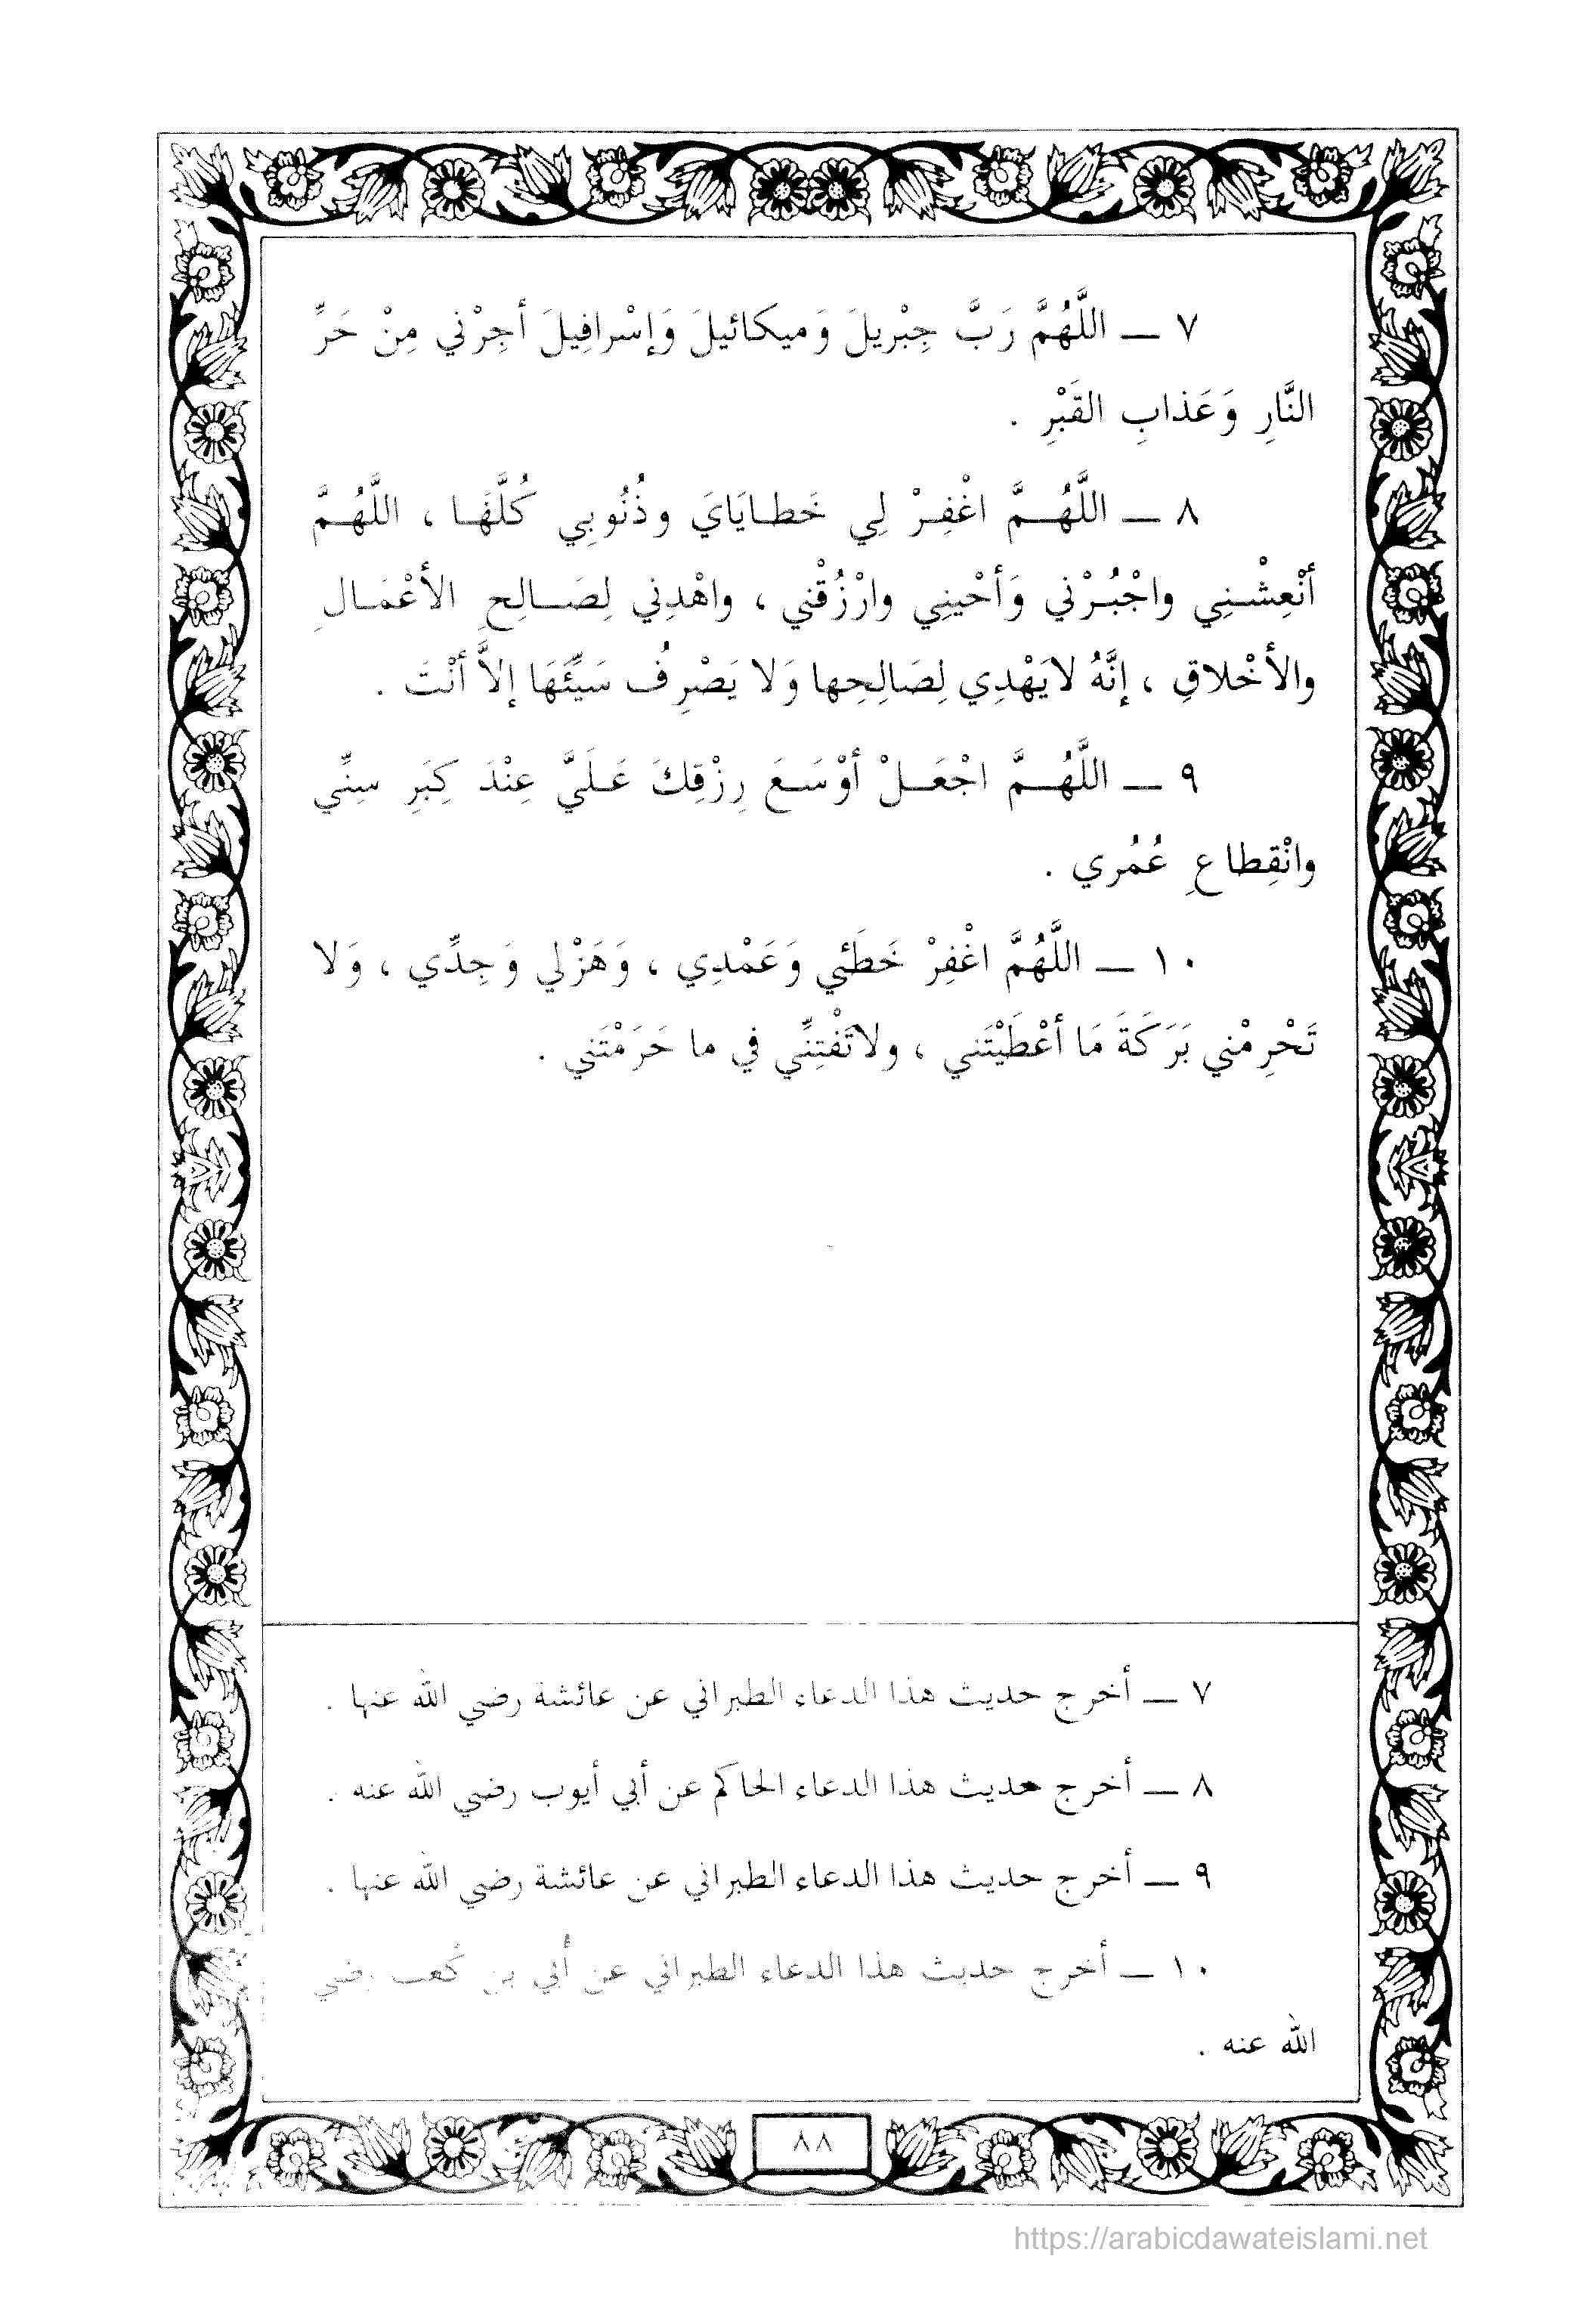 ٧ ــ اللَّهُمَّ رَبَّ جِبْريلَ وَميكائيلَ وَإسْرافِيلَ أجِرْني مِنْ حَرِّ
النَّارِ وَعَذابِ القَبْرِ .
٨ ــ اللَّهُمَّ اغْفِرْ لِي خَطايَايَ وذُنُوبِي كُلَّهَا ، اللَّهُمَّ
أنْعِشْنِي واجْبُرْني وَأحْينِي وارْزُقْني ، واهْدِني لِصَالِحِ الأعْمَالِ
والأخْلاقِ ، إنَّهُ لايَهْدِي لِصَالِحِها وَلا يَصْرِفُ سَيِّئَهَا إلاَّ أنْتَ .
٩ ــ اللَّهُمَّ اجْعَلْ أوْسَعَ رِزْقِكَ عَلَيَّ عِنْدَ كِبَرِ سِنِّي
وانْقِطاعِ عُمُري .
١٠ ــ اللَّهُمَّ اغْفِرْ خَطَئي وَعَمْدِي ، وَهَزْلي وَجِدِّي ، وَلا
تَحْرِمْني بَرَكَةَ مَا أعْطَيْتَني ، ولاتَفْتِنِّي في ما حَرَمْتَني .
٧ ــ أخرج حديث هذا الدعاء الطبراني عن عائشة رضي الله عنها .
٨ ــ أخرج حديث هذا الدعاء الحاكم عن أبي أيوب رضي الله عنه .
٩ ــ أخرج حديث هذا الدعاء الطبراني عن عائشة رضي الله عنها .
١٠ ــ أخرج حديث هذا الدعاء الطبراني عن أُبي بن كُعب رضي
الله عنه .
٨٨
https://arabicdawateislami.net